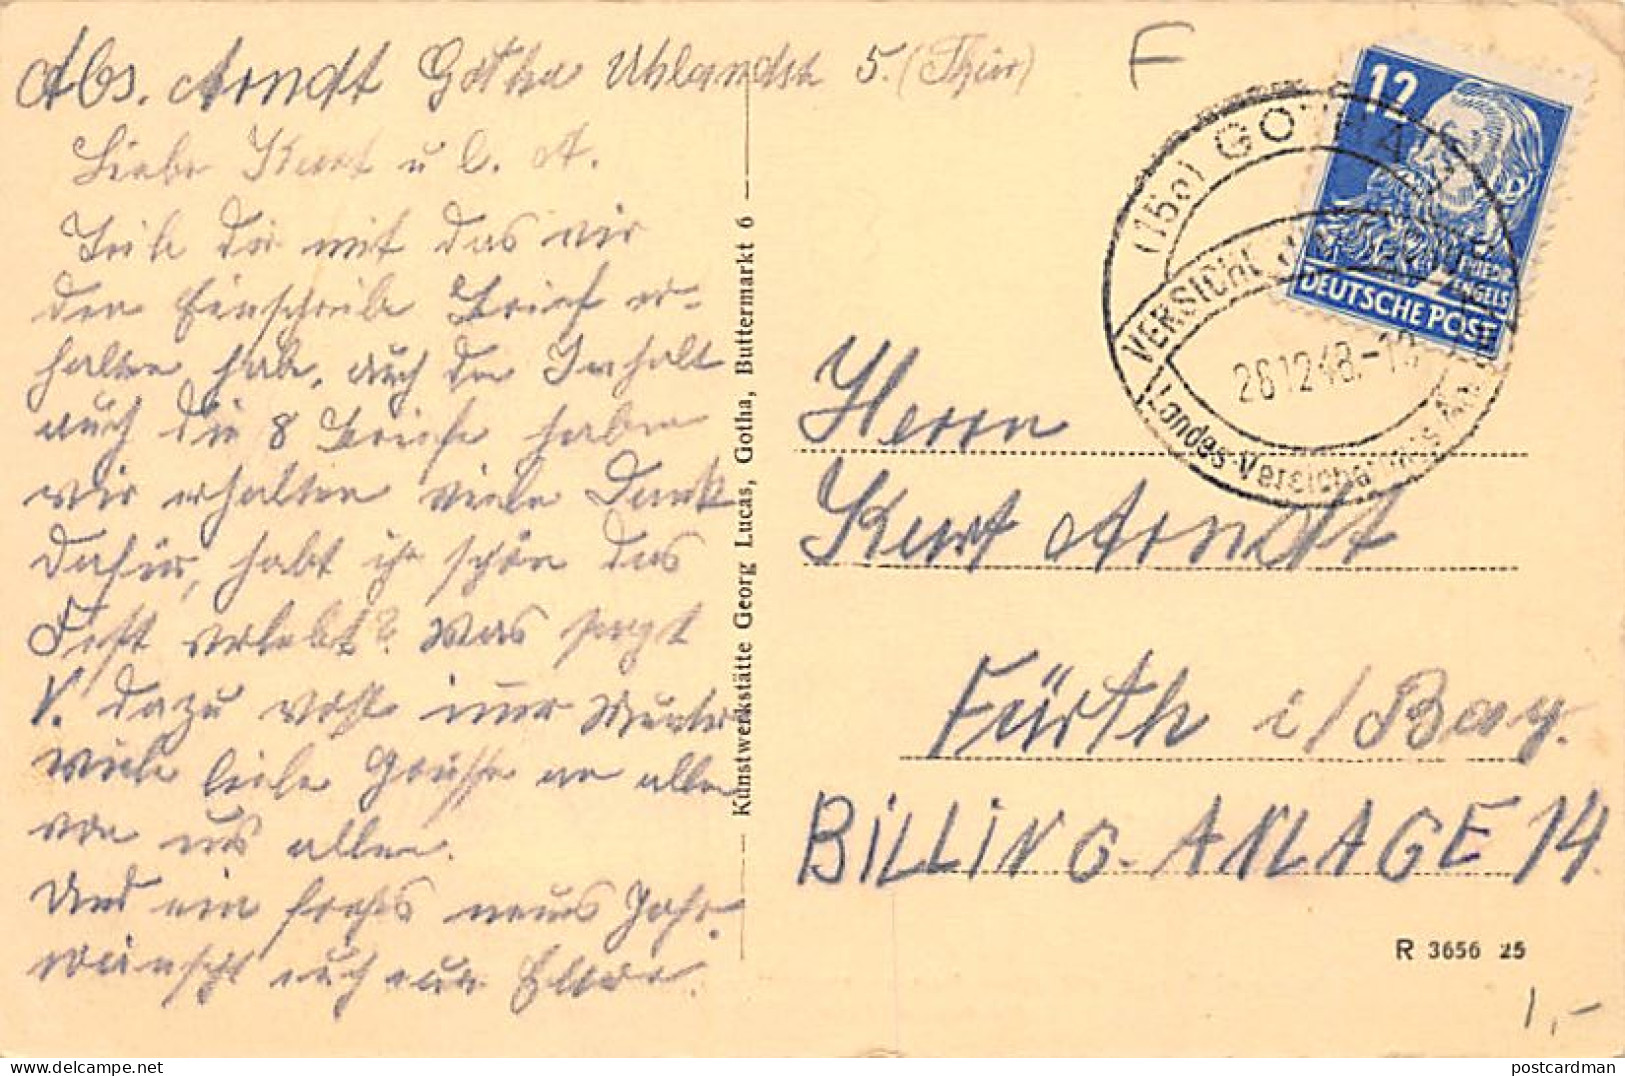 Abs. Arndt Gotha Uhlandstr 5. (Thür)
F
Liebe Kurt u C. A.
Teile dir mit das wir
den Einschreibe Brief er-
halten habe, auch den Inhalt
auch die 8 Briefe haben
wir erhalten viele Dank
dafür, habt ihr schön das
Fest verlebt? Was sagt
V. dazu
viele liebe Grüsse an alle
von uns allen.
Und ein frohes neues Jahr
wünscht euch eure Eltern.
Kunstwerkstätte Georg Lucas, Gotha, Buttermarkt 6
12
FRIEDR. ENGELS
DEUTSCHE POST
(15a) GOTHA
26.12.48.-1
Landes-Versicherungs
Herrn
Kurt Arndt
Fürth i/Bay.
BILLING-ANLAGE 14
R 3656 25
1,-
postcardman